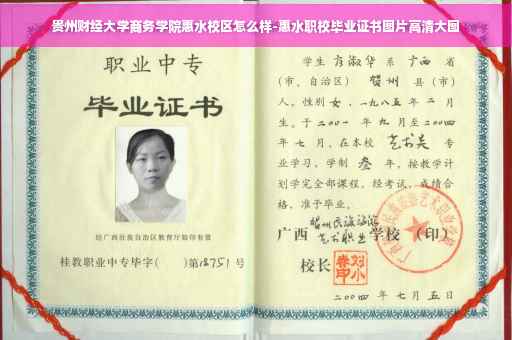 贵州财经大学商务学院惠水校区怎么样-惠水职校毕业证书图片高清大图
职业中专
毕业证书
经广西壮族自治区教育厅验印有效
桂教职业中专毕字( )第18751号
学生 淑华 系 广西 省
(市、自治区) 贺州 县(市)
人,性别 女 ,一九八五年 二 月
生。于二〇〇一 年 九 月至二〇〇四
年 七 月,在本校 艺术类 专
业学习,学制 叁 年,按教学计
划学完全部课程,经考试,成绩合
格,准予毕业。
广西 贺州民族旅游
艺术职业 学校(印)
校长
二〇〇四 年 七 月 五 日